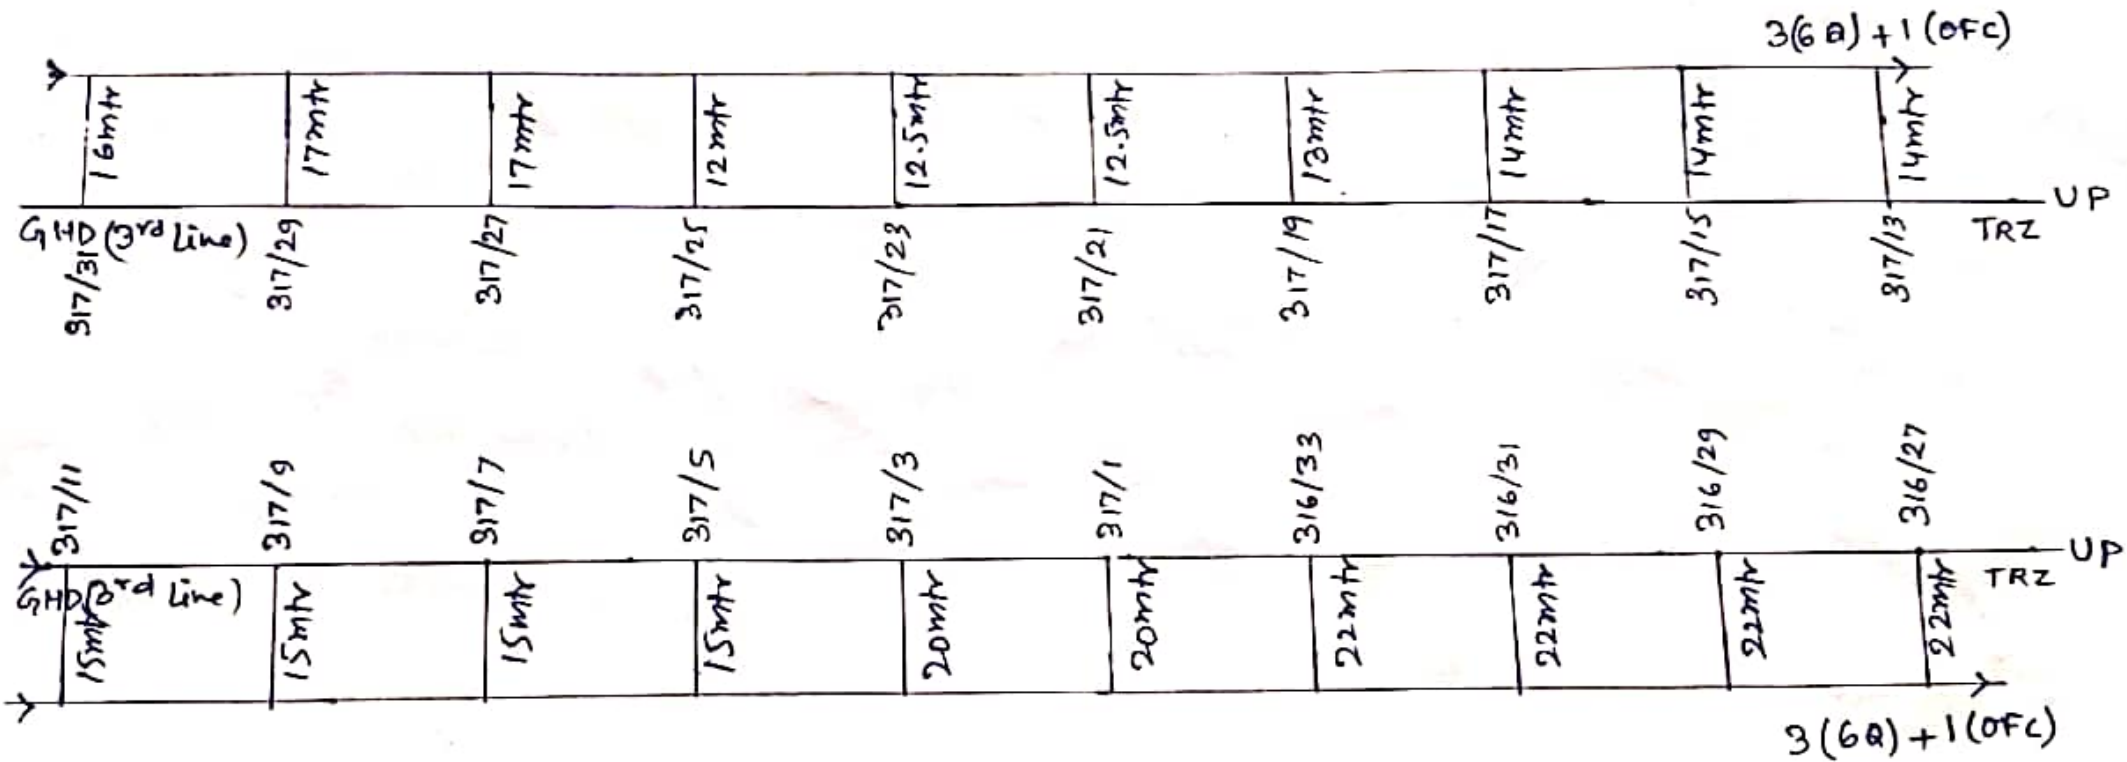 3(6Q)+1(OFC)
16mtr 17mtr 17mtr 12mtr 12.5mtr 12.5mtr 13mtr 14mtr 14mtr 14mtr
UP
GHD(3rd Line) TRZ
317/31 317/29 317/27 317/25 317/23 317/21 317/19 317/17 317/15 317/13
317/11 317/9 317/7 317/5 317/3 317/1 316/33 316/31 316/29 316/27
UP
GHD(3rd Line) TRZ
15mtr 15mtr 15mtr 15mtr 20mtr 20mtr 22mtr 22mtr 22mtr 22mtr
3(6Q)+1(OFC)